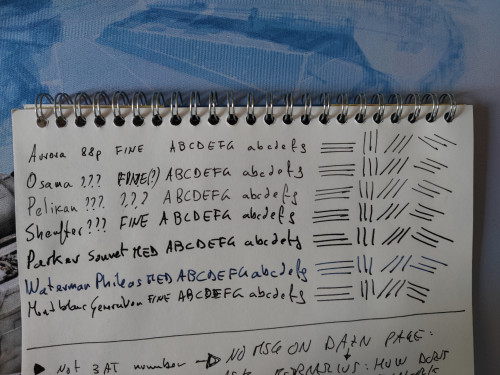 Aurora 88p FINE ABCDEFG abcdefg
Osama ??? FINE(?) ABCDEFG abcdefg
Pelikan ??? ??? ABCDEFG abcdefg
Sheaffer ??? FINE ABCDEFG abcdefg
Parker Sonnet MED ABCDEFG abcdefg
Waterman Phileas MED ABCDEFG abcdefg
Montblanc Generation FINE ABCDEFG abcdefg
Not 3AT number → NO MSG ON PAGE:
: HOW DOES